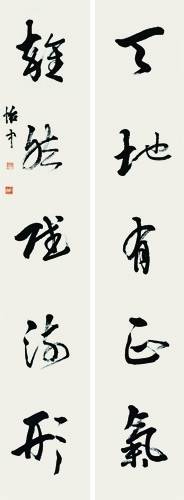 天地有正氣
雜然賦流形